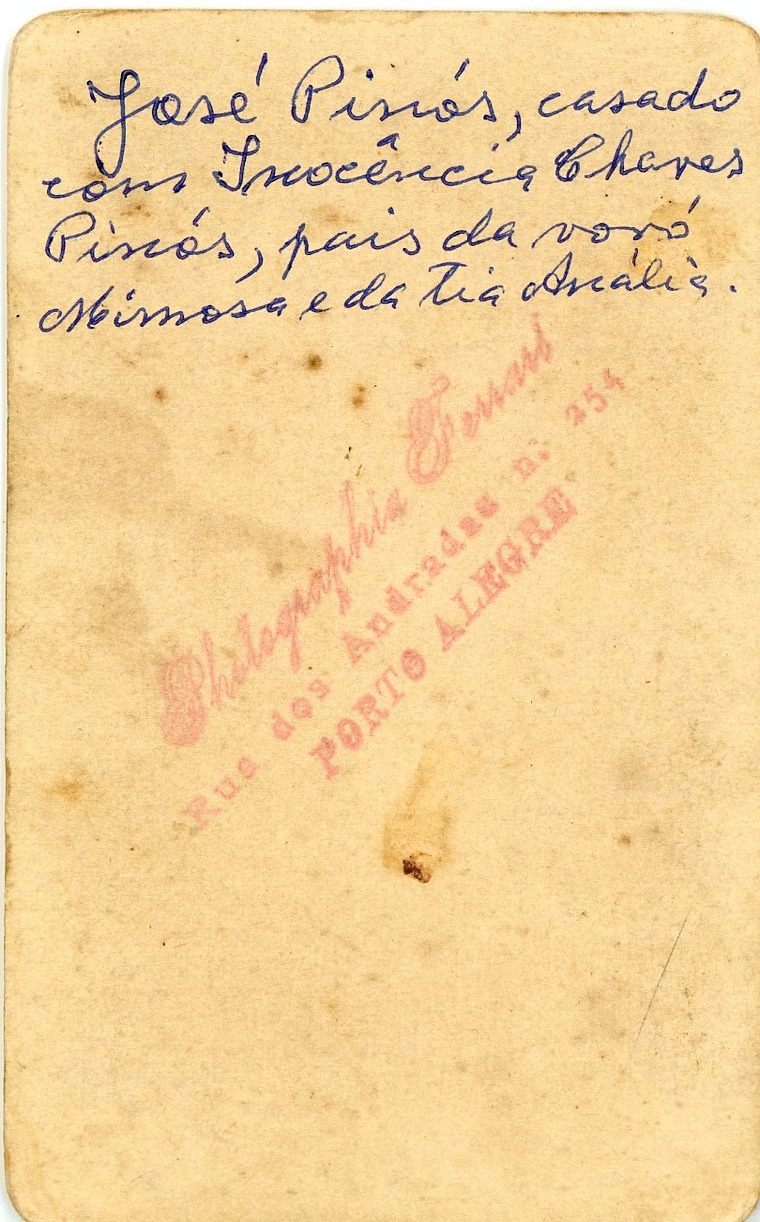 José Pinós, casado
com Inocência Chaves
Pinós, pais da vovó
Mimosa e da tia Anália.
Photographia Ferrari
Rua dos Andradas n: 254
PORTO ALEGRE